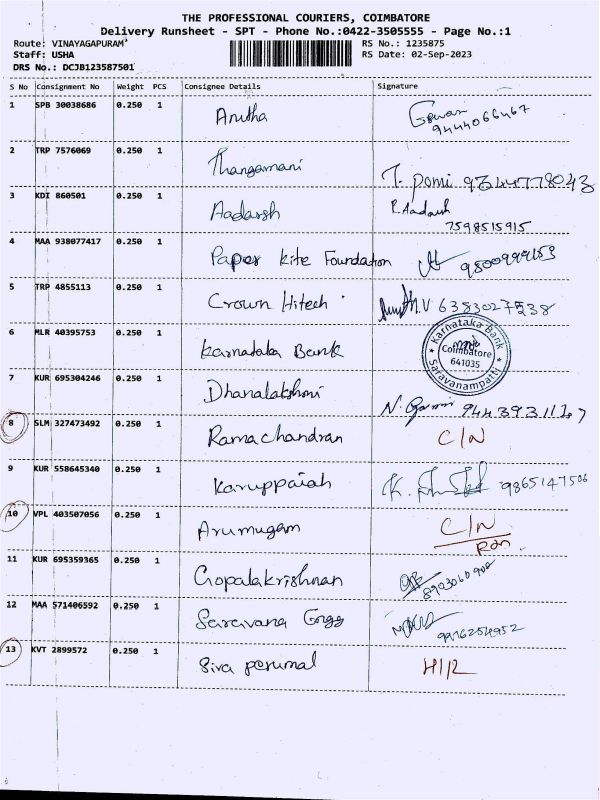 THE PROFESSIONAL COURIERS, COIMBATORE
Delivery Runsheet - SPT - Phone No.:0422-3505555 - Page No.:1
Route: VINAYAGAPURAM
RS No.: 1235875
Staff: USHA
RS Date: 02-Sep-2023
DRS No.: DCJB123587501
S No Consignment No Weight PCS Consignee Details Signature
1 SPB 30038686 0.250 1 Anitha
9444066467
2 TRP 7576069 0.250 1 Thangamani
T. pomi
3 KDI 860501 0.250 1 Aadarsh R. Aadarsh
7598515915
4 MAA 938077417 0.250 1 Paper kite Foundation
5 TRP 4855113 0.250 1 Crown Hitech
6 MLR 40395753 0.250 1 Karnataka Bank
Karnataka Bank
Coimbatore
641035
Saravanampatti
7 KUR 695304246 0.250 1 Dhanalakshmi
8 SLM 327473492 0.250 1 Ramachandran C/N
9 KUR 558645340 0.250 1 Karuppaiah 9865147506
10 VPL 403507056 0.250 1 Arumugam C/N
11 KUR 695359365 0.250 1 Gopalakrishnan
8903060900
12 MAA 571406592 0.250 1 Saravana
13 KVT 2899572 0.250 1 Siva perumal